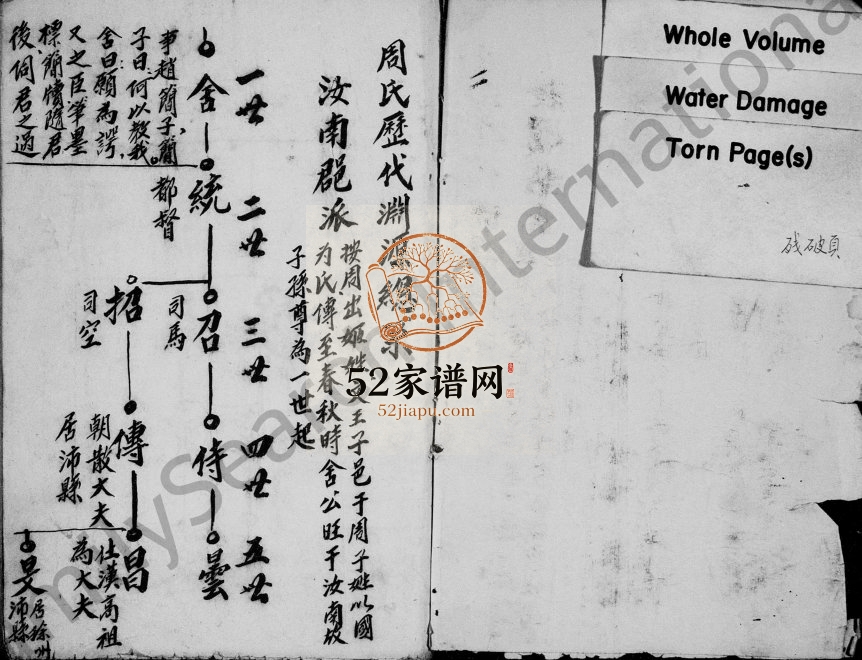 Whole Volume
Water Damage
Torn Page(s)
残破頁
周氏歷代淵源總
汝南郡派
按周出姬姓 王子邑于周子姓以國
为氏傳至春秋時舍公旺于汝南故
子孫尊為一世起
一世 二世 三世 四世 五世
舍 統 召 侍 曇
事趙簡子簡
子曰何以教我
舍曰願為諤
又之臣筆墨
標簡牘隨君
後伺君之過
都督
司馬
招 傳 昌
司空
朝散大夫
居沛縣
仕漢高祖
為大夫
旻
居徐州
沛縣
52家谱网
52jiapu.com